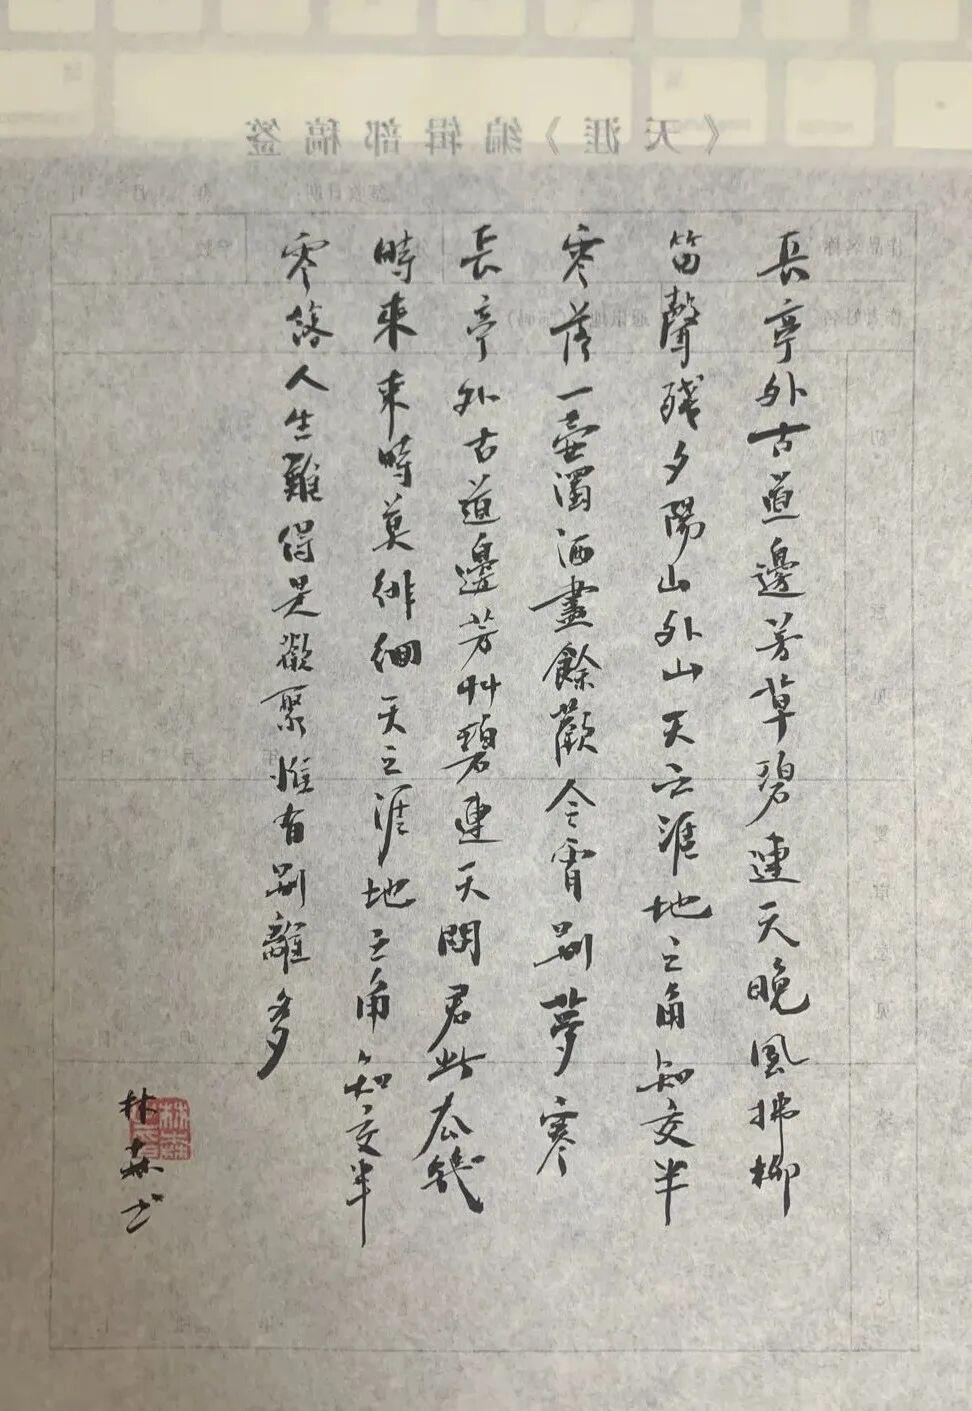 《天涯》编辑部稿签
長亭外古道邊芳草碧連天晚風拂柳
笛聲殘夕陽山外山天之涯地之角知交半
零落一壺濁酒盡餘歡今宵別夢寒
長亭外古道邊芳艸碧連天問君此去幾
時來來時莫徘徊天之涯地之角知交半
零落人生難得是歡聚惟有別離多
林森书